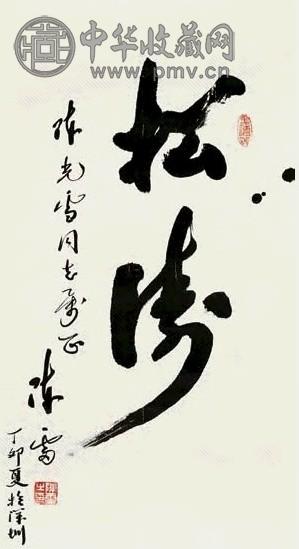 中华收藏网
www.pmv.cn
松涛
陈光雪同志正
陈雷
丁卯夏於深圳